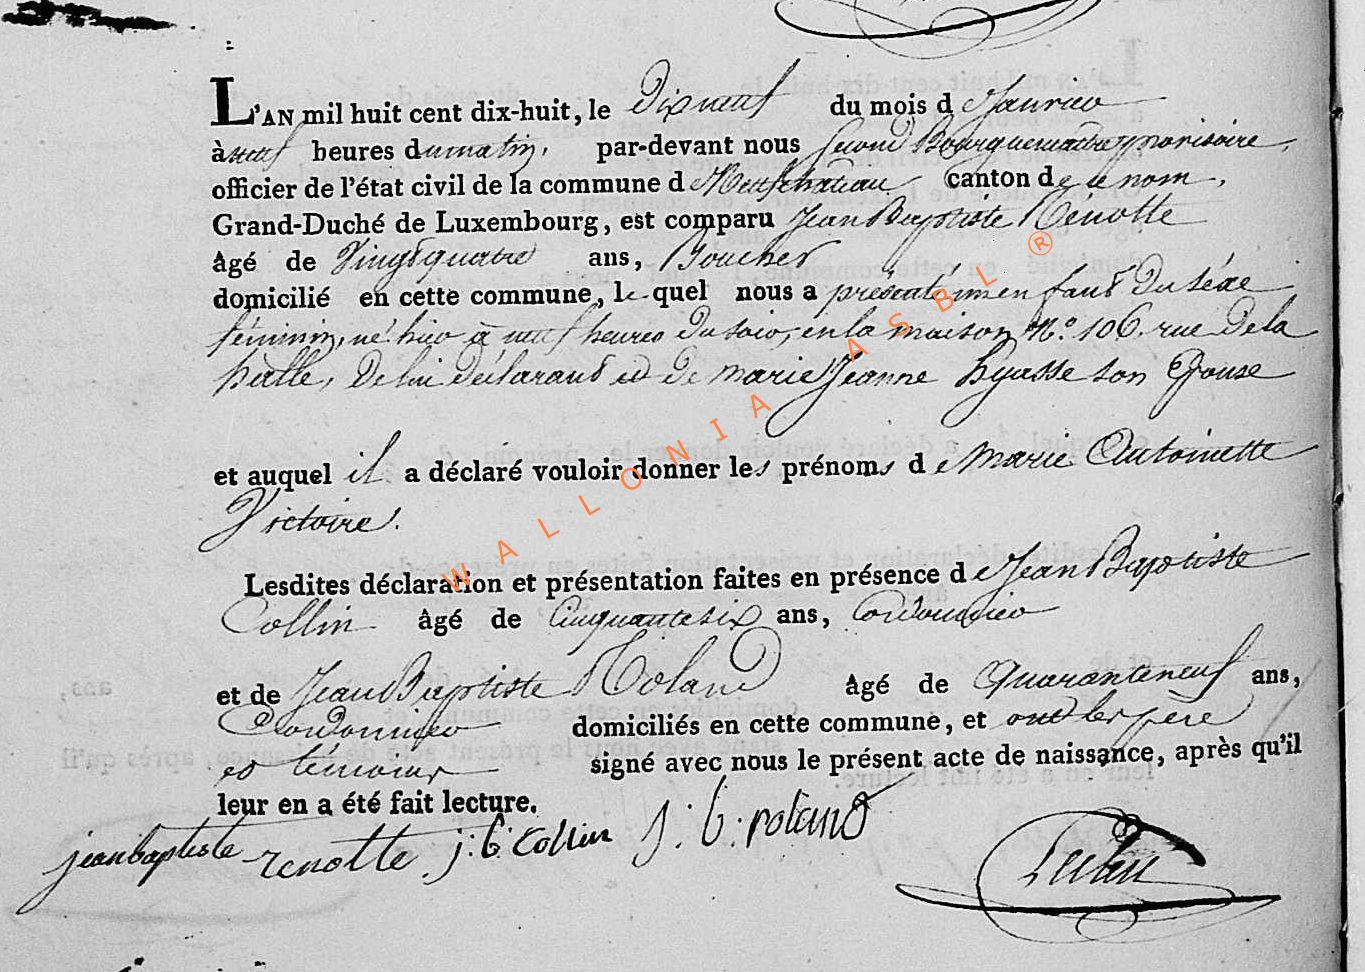 L'AN mil huit cent dix-huit, le Dixneuf du mois de Janvier
à neuf heures du matin, par-devant nous second Bourguemaitre provisoire,
officier de l'état civil de la commune de Neufchateau canton de ce nom,
Grand-Duché de Luxembourg, est comparu Jean Baptiste Renotte
âgé de Vingt quatre ans, Boucher
domicilié en cette commune, le quel nous a présenté un enfant du séxe
féminin, né hier à neuf heures du soir, en la maison N.o 106. rue de la
halle, De lui déclarant et de marie Jeanne hyasse son Epouse
et auquel il a déclaré vouloir donner les prénoms de Marie Antoinette
Victoire.
Lesdites déclaration et présentation faites en présence de Jean Baptiste
Collin âgé de Cinquante six ans, Cordonnier
et de Jean Baptiste Roland âgé de Quarante neuf ans,
Cordonnier domiciliés en cette commune, et ont les père
et témoins signé avec nous le présent acte de naissance, après qu'il
leur en a été fait lecture.
jeanbaptiste renotte j: b: Collin J: b: roland
WALLONIA ASBL ®